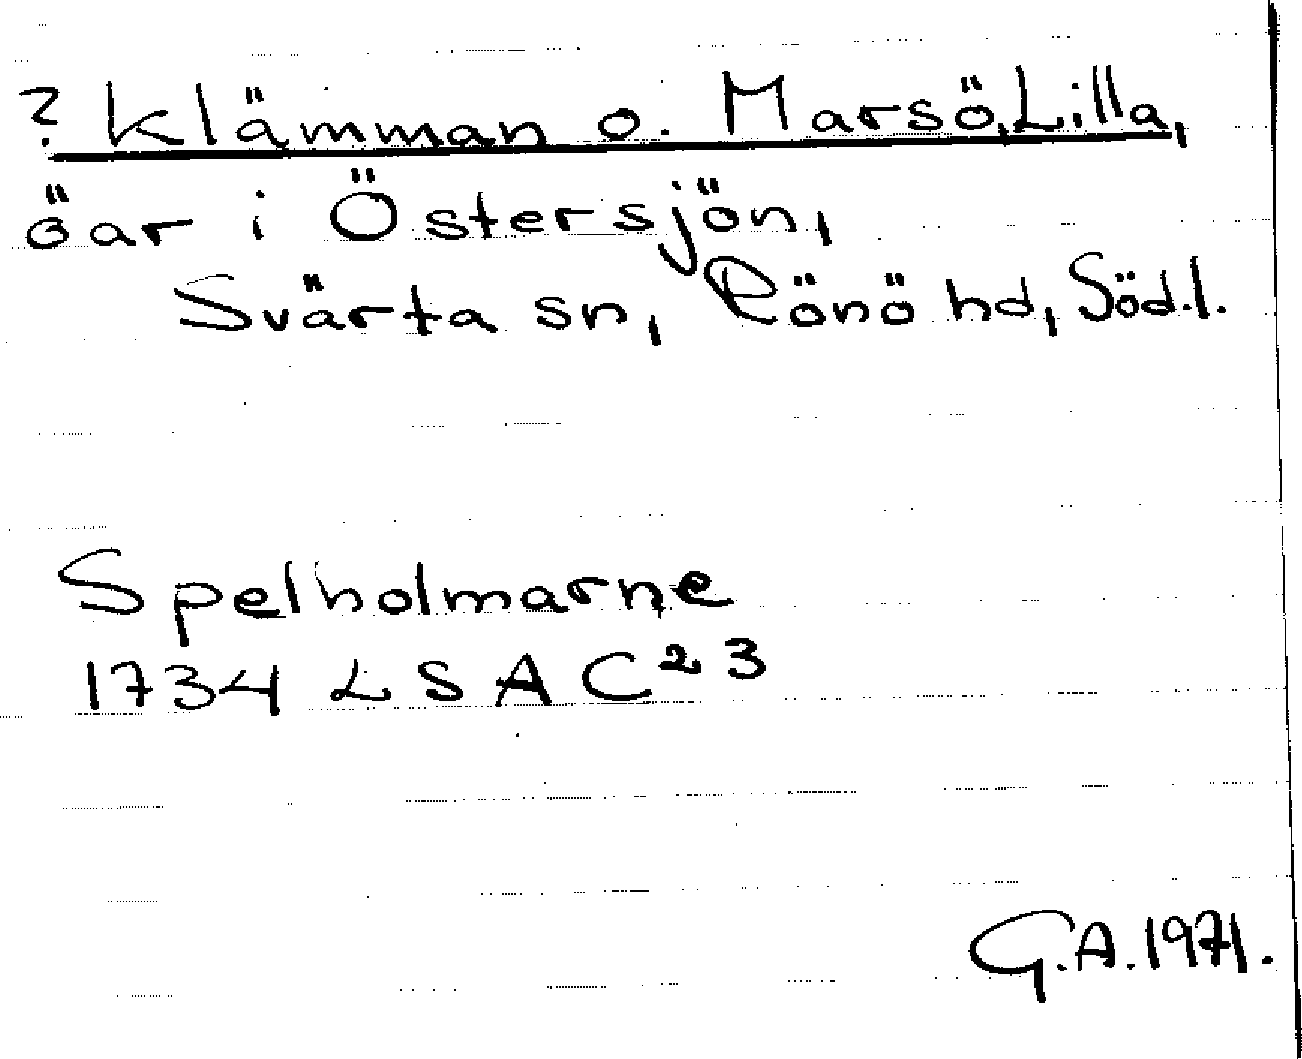 ? Klämman o. Marsö, Lilla,
öar i Östersjön,
Svärta sn, Rönö hd, Södl.
Spelholmarne
1734 LSA C²3
G.A. 1971.